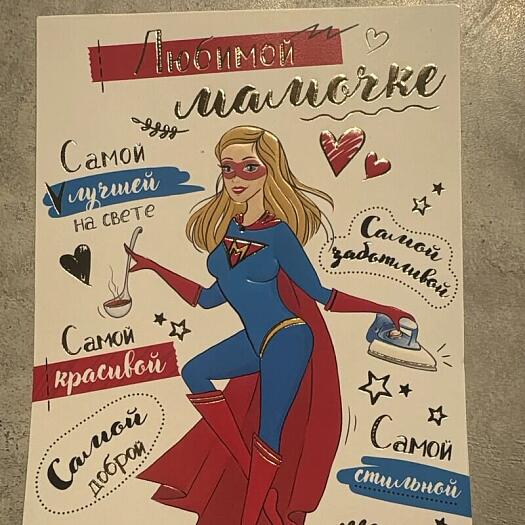 Любимой
мамочке
Самой
лучшей
на свете
Самой
заботливой
М
Самой
красивой
Самой
доброй
Самой
стильной